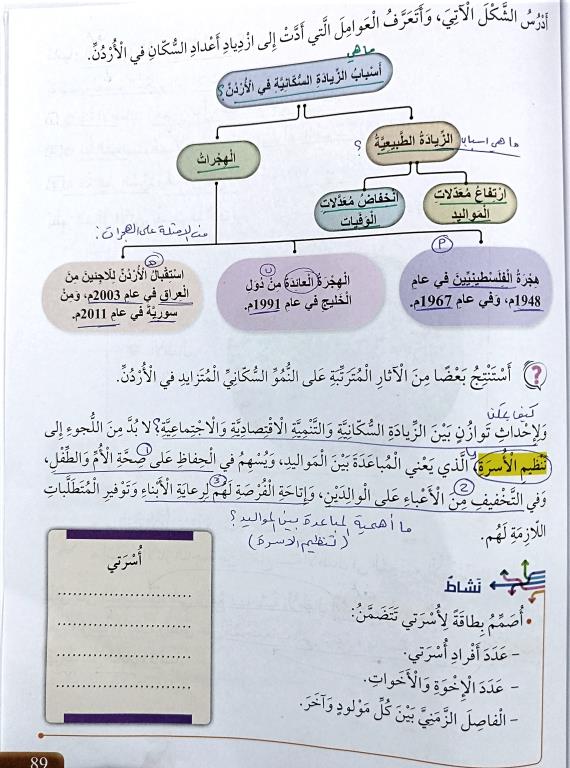 أَدْرُسُ الشَّكْلَ الْآتِيَ، وَأَتَعَرَّفُ الْعَوامِلَ الَّتي أَدَّتْ إِلى ازْدِيادِ أَعْدادِ السُّكّانِ في الْأُرْدُنِّ.
ما هي
أَسْبابُ الزِّيادَةِ السُّكّانِيَّةِ في الْأُرْدُنِّ ؟
ما هي اسباب الزِّيادَةُ الطَّبيعِيَّةُ ؟
الْهِجْراتُ
ارْتِفاعُ مُعَدَّلاتِ
الْمَواليدِ
انْخِفاضُ مُعَدَّلاتِ
الْوَفَياتِ
من الامثلة على الهجرات:
هِجْرَةُ الْفِلَسْطينِيّينَ في عامِ
1948م، وَفي عامِ 1967م.
الْهِجْرَةُ الْعائِدَةُ مِنْ دُوَلِ
الْخَليجِ في عامِ 1991م.
اسْتِقْبالُ الْأُرْدُنِّ لِلّاجِئينَ مِنَ
الْعِراقِ في عامِ 2003م، وَمِنْ
سورِيَّةَ في عامِ 2011م.
؟ أَسْتَنْتِجُ بَعْضًا مِنَ الْآثارِ الْمُتَرَتِّبَةِ عَلى النُّمُوِّ السُّكّانِيِّ الْمُتَزايِدِ في الْأُرْدُنِّ.
كيف يمكن
وَلِإِحْداثِ تَوازُنٍ بَيْنَ الزِّيادَةِ السُّكّانِيَّةِ وَالتَّنْمِيَةِ الِاقْتِصادِيَّةِ وَالِاجْتِماعِيَّةِ؟ لا بُدَّ مِنَ اللُّجوءِ إِلى
تَنْظيمِ الْأُسْرَةِ الَّذي يَعْني الْمُباعَدَةَ بَيْنَ الْمَواليدِ، وَيُسْهِمُ في الْحِفاظِ عَلى 1 صِحَّةِ الْأُمِّ وَالطِّفْلِ،
وَفي التَّخْفيفِ 2 مِنَ الْأَعْباءِ عَلى الْوالِدَيْنِ، وَإِتاحَةِ الْفُرْصَةِ لَهُمْ 3 لِرِعايَةِ الْأَبْناءِ وَتَوْفيرِ الْمُتَطَلَّباتِ
اللّازِمَةِ لَهُم.
ما أهمية لمباعدة بين المواليد ؟
(تنظيم الاسرة)
نَشاطٌ
• أُصَمِّمُ بِطاقَةً لِأُسْرَتي تَتَضَمَّنُ:
- عَدَدَ أَفْرادِ أُسْرَتي.
- عَدَدَ الْإِخْوَةِ وَالْأَخَواتِ.
- الْفاصِلَ الزَّمَنِيَّ بَيْنَ كُلِّ مَوْلودٍ وَآخَرَ.
أُسْرَتي
89